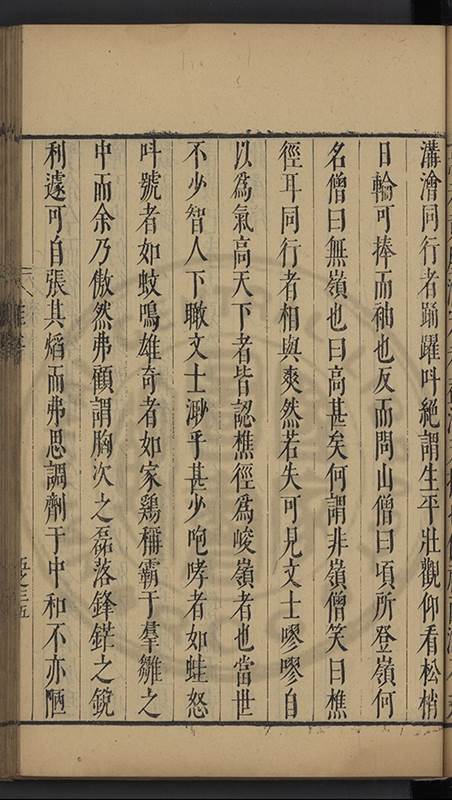 溝澮同行者踴躍呌絕謂生平壯觀仰看松梢
日輪可捧而袖也反而問山僧曰頃所登嶺何
名僧曰無嶺也曰高甚矣何謂非嶺僧笑曰樵
徑耳同行者相與爽然若失可見文士嘐嘐自
以爲氣高天下者皆認樵徑爲峻嶺者也當世
不少智人下瞰文士渺乎甚少咆哮者如蛙怒
呌號者如蚊鳴雄奇者如家鷄稱霸于羣雛之
中而余乃傲然弗顧謂胸次之磊落鋒鋩之鏡
利遽可自張其熖而弗思調劑于中和不亦陋